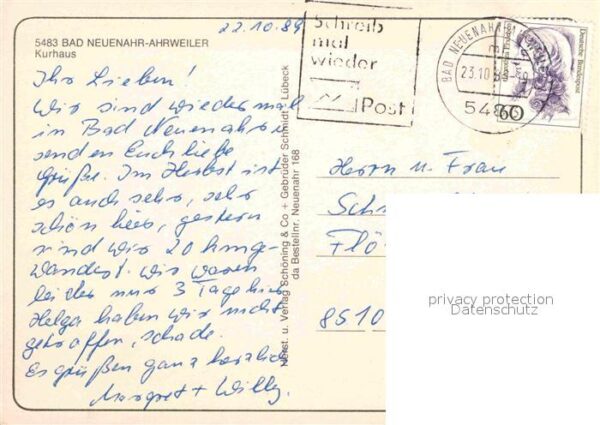 22.10.89
5483 BAD NEUENAHR-AHRWEILER
Kurhaus
Ihr Lieben!
Wir sind wieder mal
in Bad Neuenahr u
senden Euch liebe
Grüße. Im Herbst ist
es auch sehr, sehr
schön hier, gestern
sind wir 20 km ge-
wandert. Wir waren
leider nur 3 Tage hier
Helga haben wir nicht
getroffen, schade.
Es grüßen ganz herzlich
Margret + Willy
Schreib
mal
wieder
Post
BAD NEUENAHR
23.10
548
Deutsche Bundespost
60
Verlag Schöning & Co + Gebrüder Schmidt · Lübeck
da Bestellnr. Neuenahr 168
Herrn u. Frau
Sch
Flö
8510
privacy protection
Datenschutz